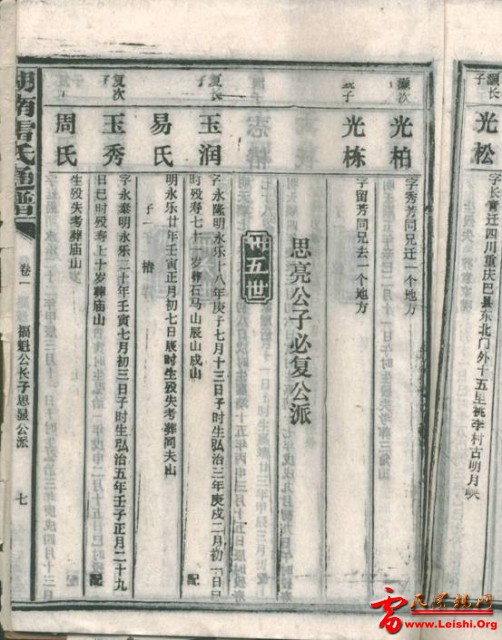 灏长
光松
字长青迁四川重庆巴县东北门外十五里桃李村古明月峡
灏次
光柏
字秀芳同兄迁一个地方
子
光栋
字留芳同兄去一个地方
思亮公子必复公派
卅五世
复长
玉润
字永隆明永乐十八年庚子七月十三日子时生弘治三年庚戌二月初一日巳
时殁寿七十一岁葬石马山辰山戍山
配
易氏
明永乐廿年壬寅正月初七日辰时生殁失考葬同夫山
子一
椿
复次
玉秀
字永泰明永乐二十年壬寅七月初三日子时生弘治五年壬子正月二十九
日巳时殁寿七十岁葬庙山
配
周氏
生殁失考葬庙山
湖南雷氏通谱
卷一
福魁公长子思显公派
七
雷
www.Leishi.Org